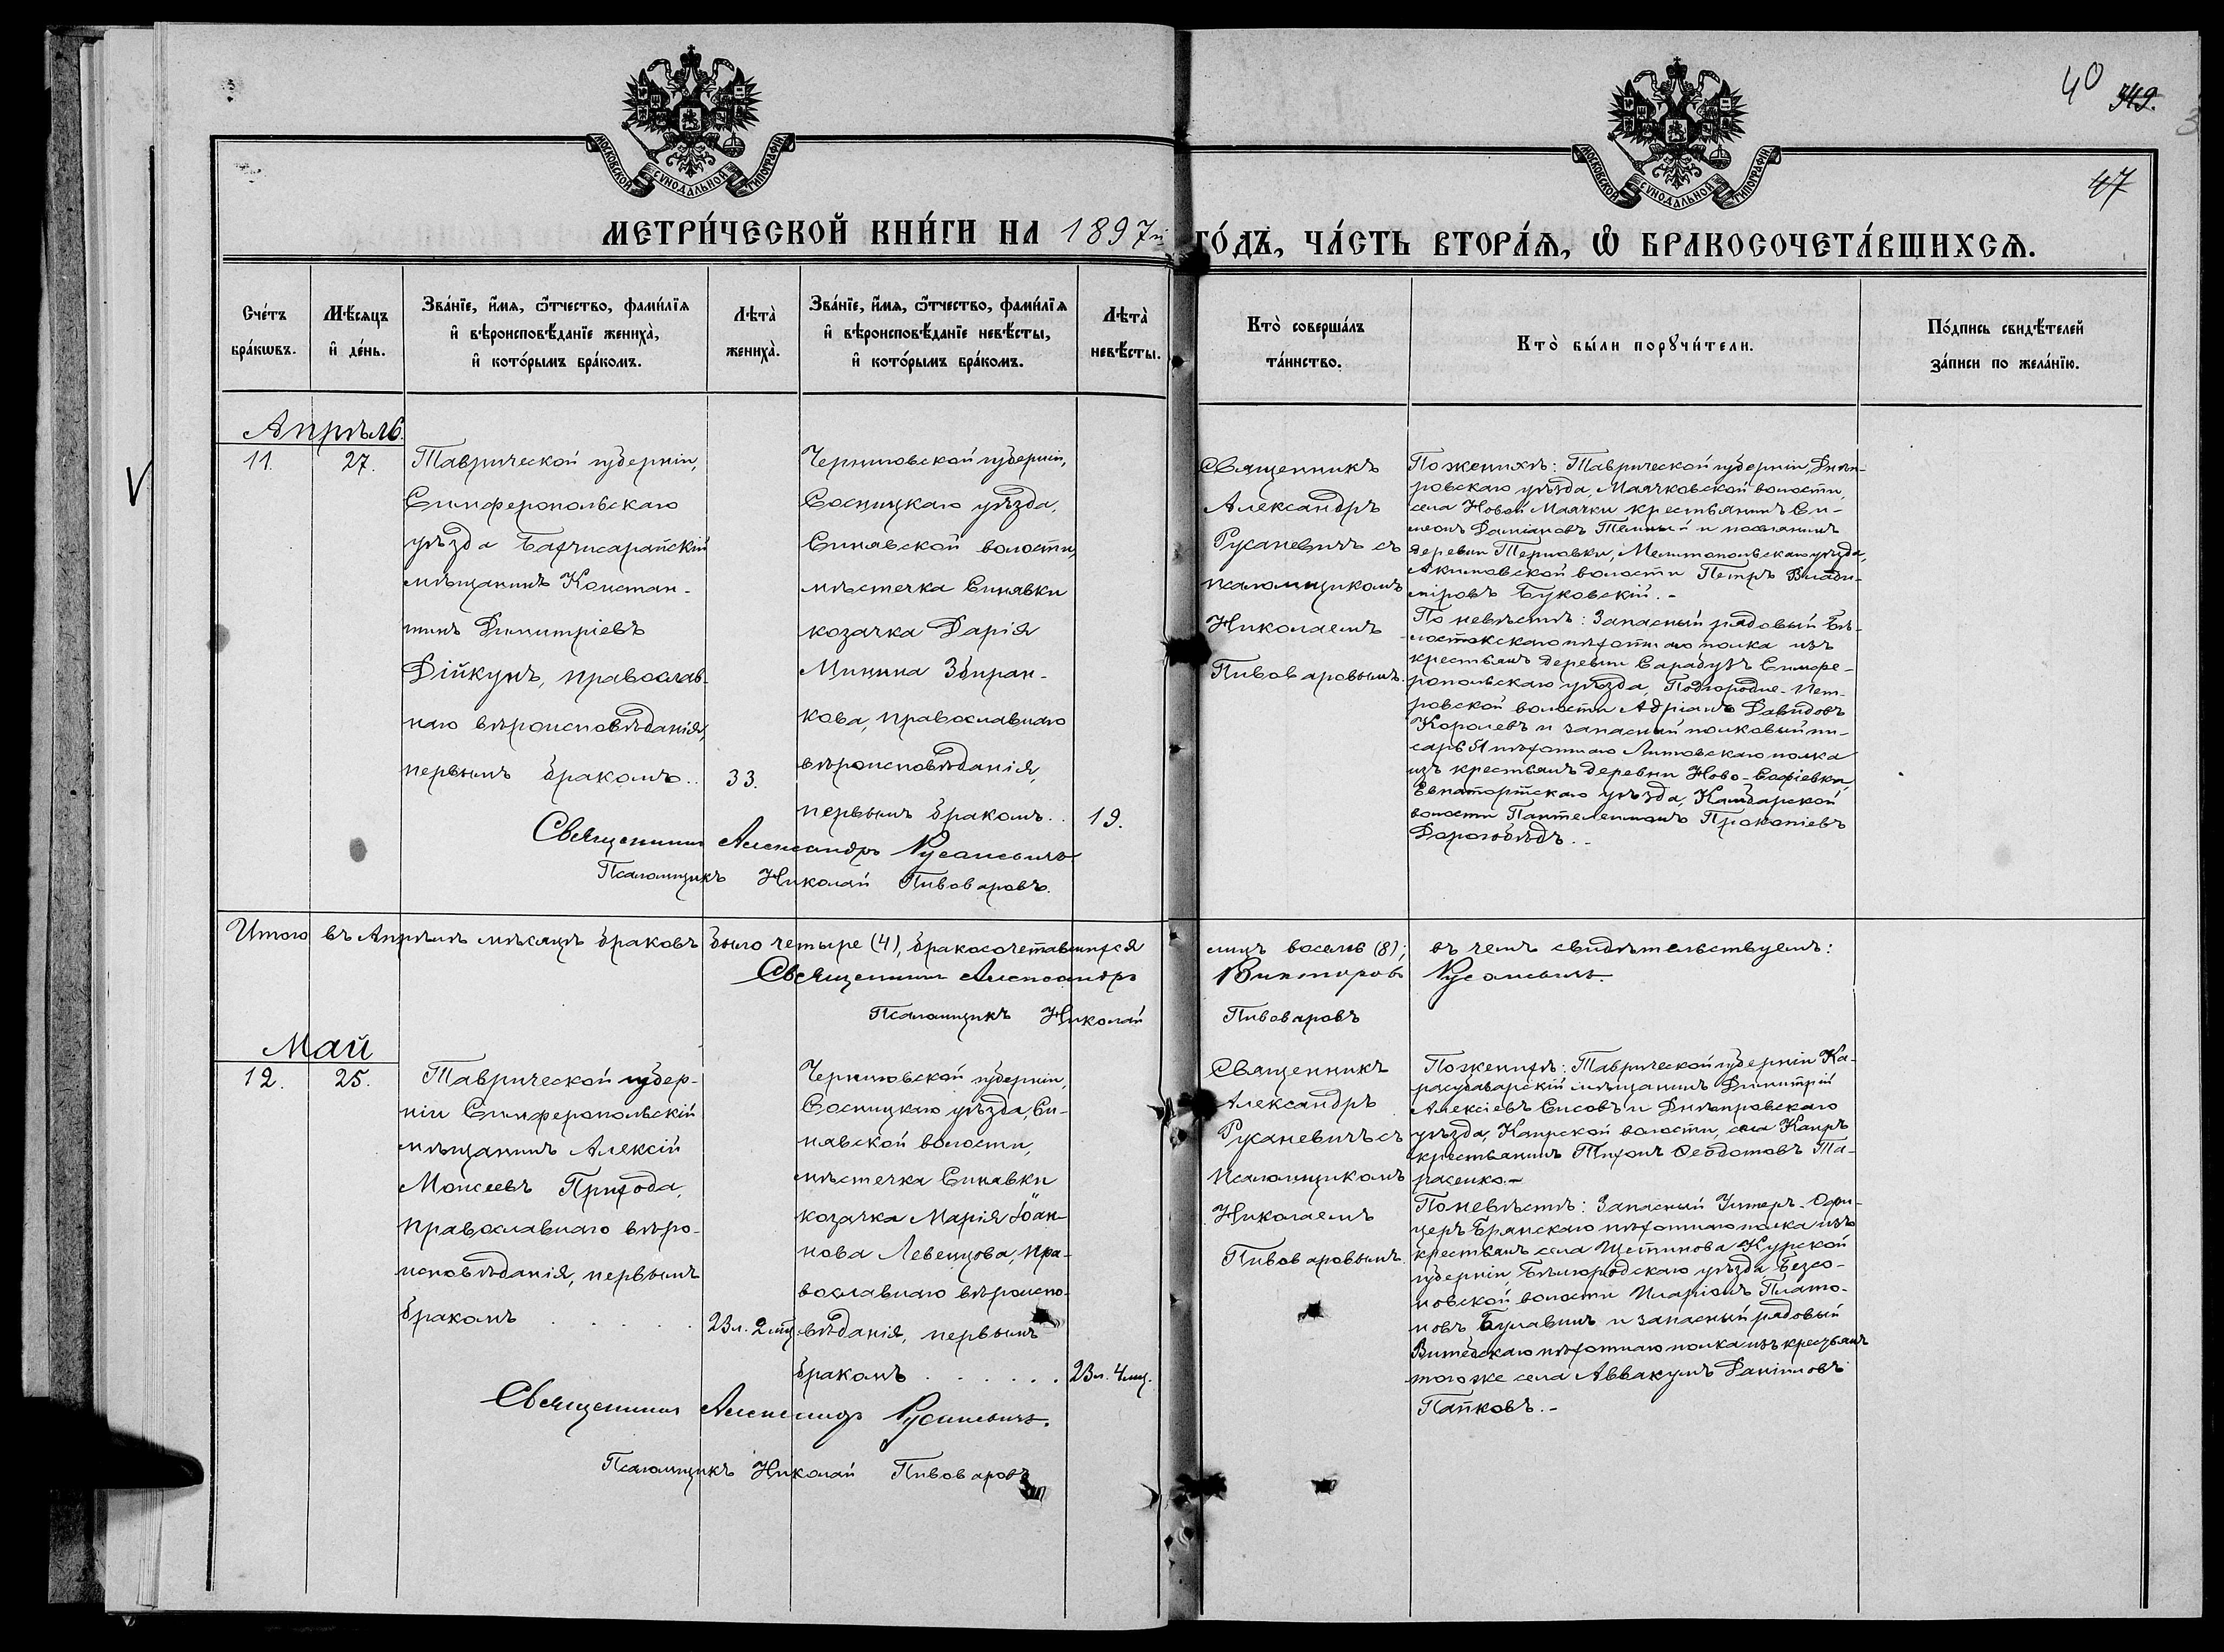 40 349.
47
МОСКОВСКОЙ СѴНОДАЛЬНОЙ ТИПОГРАФІИ
МОСКОВСКОЙ СѴНОДАЛЬНОЙ ТИПОГРАФІИ
МЕТРИ́ЧЕСКОЙ КНИ́ГИ НА 1897й ГО́ДЪ, ЧА́СТЬ ВТОРА́Ѧ, Ѽ БРАКОСОЧЕТА́ВШИХСѦ.
Сче́тъ
бра́кѡвъ.
Мѣ́сяцъ
и҆ де́нь.
Зва́нїе, и҆́мѧ, ѻ҆́тчество, фами́лїѧ
и҆ вѣроисповѣ́данїе жениха̀,
и҆ кото́рымъ бра́комъ.
Лѣта̀
жениха̀.
Зва́нїе, и҆́мѧ, ѻ҆́тчество, фами́лїѧ
и҆ вѣроисповѣ́данїе невѣ́сты,
и҆ кото́рымъ бра́комъ.
Лѣта̀
невѣ́сты.
Кто̀ соверша́лъ
та́инство.
Кто̀ бы́ли порꙋчи́тели.
По́дпись свидѣ́телей
за́писи по жела́нїю.
Апрѣль.
11. 27.
Таврической губерніи,
Симферопольскаго
уѣзда Бахчисарайскій
мѣщанинъ Констан-
тинъ Димитріевъ
Дійкунъ, православ-
наго вѣроисповѣданія,
первымъ бракомъ..
33.
Черниговской губерніи,
Сосницкаго уѣзда,
Синявской волости,
мѣстечка Синявки
козачка Дарія
Минина Збиран-
кова, православнаго
вѣроисповѣданія,
первымъ бракомъ..
19.
Священникъ
Александръ
Русаневичъ съ
псаломщикомъ
Николаемъ
Пивоваровымъ.
По женихѣ: Таврической губерніи, Днѣп-
ровскаго уѣзда, Маячковской волости,
села Новой Маячки крестьянинъ Си-
меонъ Даміановъ Темный и поселянинъ
деревни Терновки, Мелитопольскаго уѣзда,
Акимовской волости Петръ Влади-
міровъ Буковскій.-
По невѣстѣ: Запасный рядовый Бѣ-
лостокскаго пѣхотнаго полка изъ
крестьянъ деревни Сарабузъ Симфе-
ропольскаго уѣзда, Подгородне-Пет-
ровской волости Адріанъ Давидовъ
Королевъ и запасный полковый пи-
сарь 51 пѣхотнаго Литовскаго полка
изъ крестьянъ деревни Ново-Софіевки,
Евпаторійскаго уѣзда, Камбарской
волости Пантелеимонъ Прокопіевъ
Дорогобѣдъ.-
Священникъ Александръ Русаневичъ
Псаломщикъ Николай Пивоваровъ.
Итого въ Апрѣлѣ мѣсяцѣ браковъ было четыре (4), бракосочетавшихся лицъ восемь (8); въ чемъ свидѣтельствуемъ:
Священникъ Александръ Викторовъ Русаневичъ.
Псаломщикъ Николай Пивоваровъ
Май
12. 25.
Таврической губер-
ніи Симферопольскій
мѣщанинъ Алексій
Моисеевъ Приходa,
православнаго вѣро-
исповѣданія, первымъ
бракомъ . . . . .
23 л. 2 мц.
Черниговской губерніи,
Сосницкаго уѣзда, Си-
нявской волости,
мѣстечка Синявки
козачка Марія Іоан-
нова Левенцова, пра-
вославнаго вѣроиспо-
вѣданія, первымъ
бракомъ . . . . . .
23 л. 4 мц.
Священникъ
Александръ
Русаневичъ съ
псаломщикомъ
Николаемъ
Пивоваровымъ.
По женихѣ: Таврической губерніи Ка-
расубазарскій мѣщанинъ Димитрій
Алексіевъ Сисовъ и Днѣпровскаго
уѣзда, Каирской волости, села Каиръ
крестьянинъ Тихонъ Ѳеодотовъ Та-
расенко.-
По невѣстѣ: Запасный Унтеръ-Офи-
церъ Брянскаго пѣхотнаго полка изъ
крестьянъ села Щетинова Курской
губерніи, Бѣлгородскаго уѣзда, Безсо-
новской волости Иларіонъ Плато-
новъ Булавинъ и запасный рядовый
Витебскаго пѣхотнаго полка изъ крестьянъ
того же села Аввакумъ Даніиловъ
Папковъ.-
Священникъ Александръ Русаневичъ.
Псаломщикъ Николай Пивоваровъ